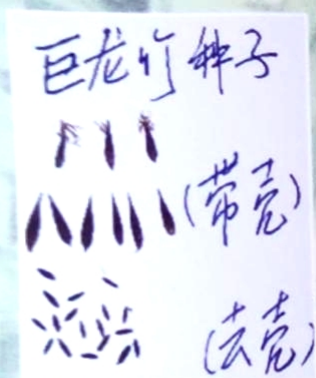 巨龙竹种子
(带壳)
(去壳)